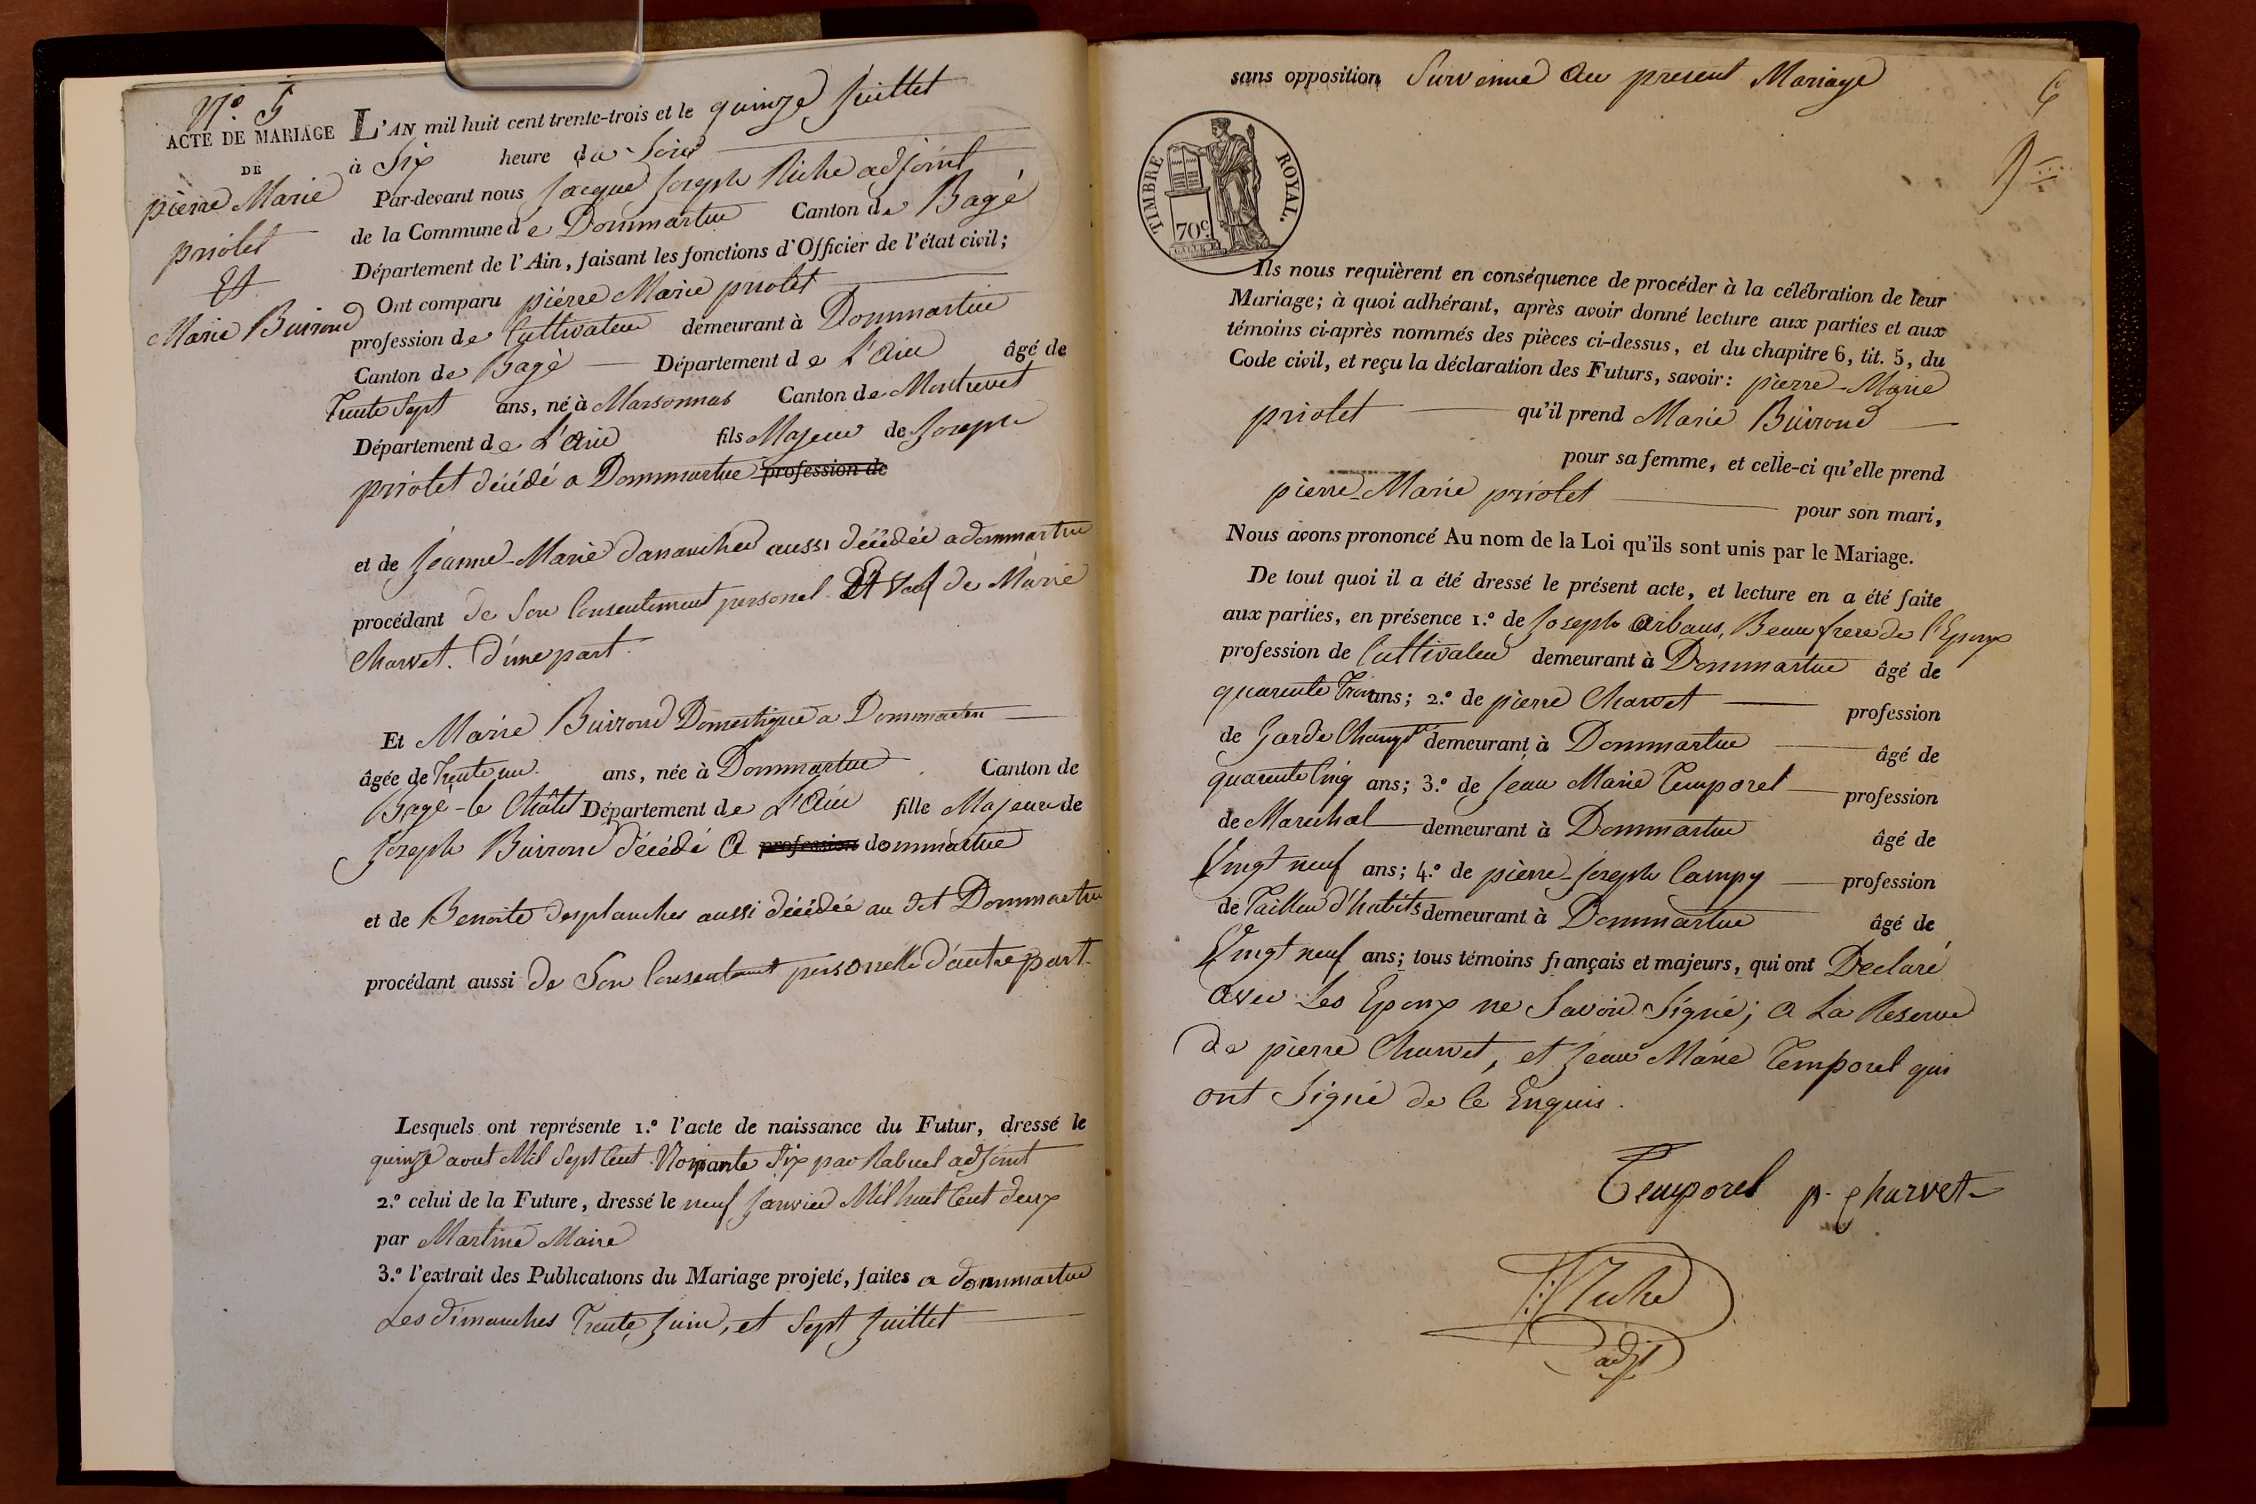 N.° 5
ACTE DE MARIAGE
DE
pierre Marie
priolet
Et
Marie Buirond
L'AN mil huit cent trente-trois et le quinze juillet
à Six heure du Soir
Par-devant nous Jacque Joseph Riche adjoint
de la Commune de Dommartin Canton de Bagé
Département de l'Ain, faisant les fonctions d'Officier de l'état civil;
Ont comparu pierre Marie priolet
profession de Cultivateur demeurant à Dommartin
Canton de Bagé Département de L'Ain âgé de
Trente Sept ans, né à Marsonnas Canton de Montrevet
Département de L'ain fils Majeur de Joseph
priolet décédé a Dommartin profession de
et de Jeanne-Marie danancher aussi décédée a dommartin
procédant de Son Consentement personel Et Veuf de Marie
Charvet. d'une part.
Et Marie Buirond Domestique a Dommartin
âgée de Trente un ans, née à Dommartin Canton de
Bagé-le Châtel Département de L'Ain fille Majeure de
Joseph Buirond décédé a profession dommartin
et de Benoite desplanches aussi décédée au dit Dommartin
procédant aussi de Son Consentemt personelle d'autre part.
Lesquels ont représente 1.° l'acte de naissance du Futur, dressé le
quinze aout Mil Sept Cent Nonante Six par Rabuel adjoint
2.° celui de la Future, dressé le neuf Janvier Mil huit Cent deux
par Martine Maire
3.° l'extrait des Publications du Mariage projeté, faites a dommartin
Les dimanches Trente Juin, et Sept Juillet
6
sans opposition Survenue Au present Mariage
TIMBRE ROYAL.
70 c.
Ils nous requièrent en conséquence de procéder à la célébration de leur
Mariage; à quoi adhérant, après avoir donné lecture aux parties et aux
témoins ci-après nommés des pièces ci-dessus, et du chapitre 6, tit. 5, du
Code civil, et reçu la déclaration des Futurs, savoir: pierre-Marie
priolet qu'il prend Marie Buirond
pour sa femme, et celle-ci qu'elle prend
pierre-Marie priolet pour son mari,
Nous avons prononcé Au nom de la Loi qu'ils sont unis par le Mariage.
De tout quoi il a été dressé le présent acte, et lecture en a été faite
aux parties, en présence 1.° de Joseph Arbans, Beau frere de l'Epoux
profession de Cultivateur demeurant à Dommartin âgé de
quarente Trois ans; 2.° de pierre Charvet profession
de Garde Champt demeurant à Dommartin âgé de
quarente Cinq ans; 3.° de Jean Marie Temporel profession
de Marechal demeurant à Dommartin âgé de
Vingt neuf ans; 4.° de pierre-joseph Campy profession
de Tailleur d'habits demeurant à Dommartin âgé de
Vingt neuf ans; tous témoins français et majeurs, qui ont Declaré
avec Les Epoux ne Savoir Signé; a La Reserve
de pierre Charvet, et Jean Marie Temporel qui
ont Signé de Ce Enquis.
Temporel p. charvet
Riche
adjt